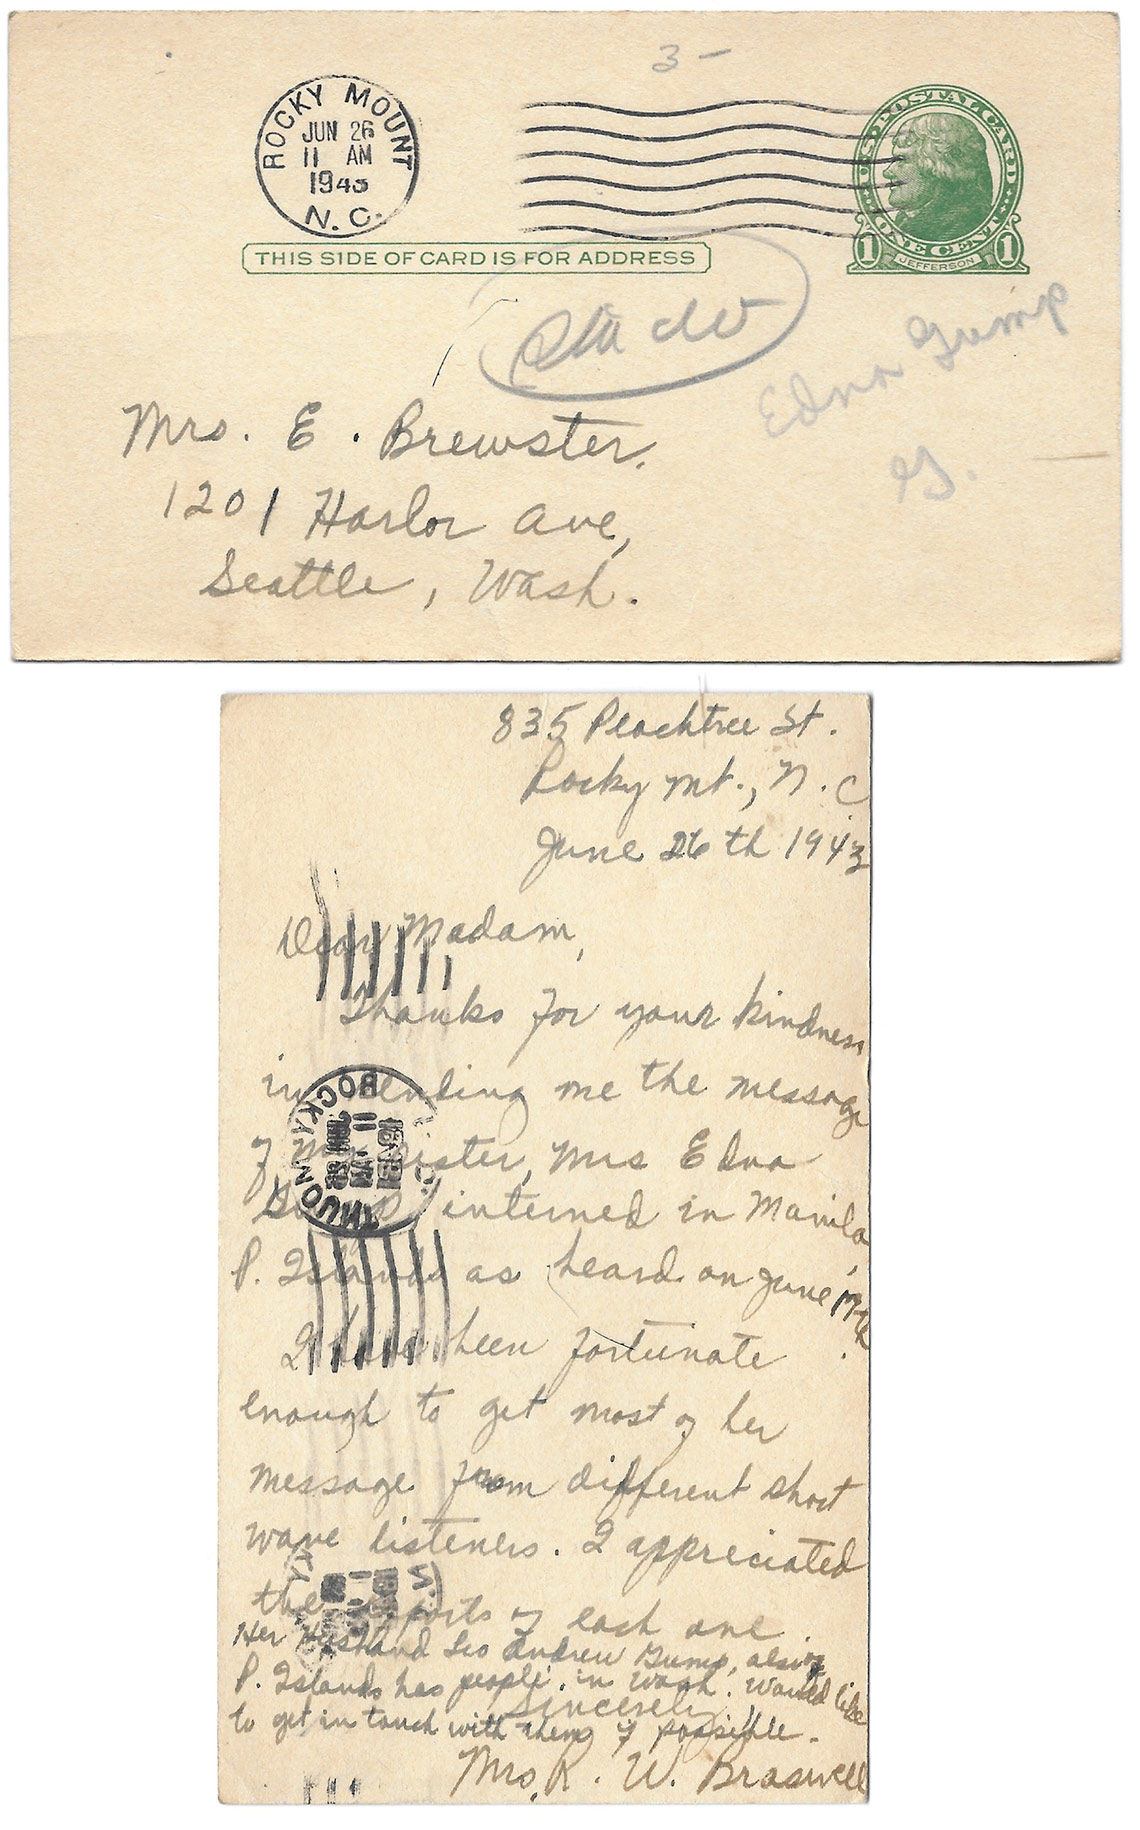 3 -
ROCKY MOUNT
JUN 26
11 AM
1943
N. C.
U.S. POSTAL CARD
ONE CENT
1 JEFFERSON 1
THIS SIDE OF CARD IS FOR ADDRESS
Edna Gump
G.
Mrs. E. Brewster.
1201 Harlor Ave,
Seattle, Wash.
835 Peachtree St.
Rocky Mt., N. C
June 26th 1943
Dear Madam,
Thanks for your kindness
in sending me the message
of my sister, Mrs Edna
Gump interned in Manila,
P. Islands as heard on June 17th.
I have been fortunate
enough to get most of her
message from different short
wave listeners. I appreciated
the reports of each one.
Her Husband Leo Andrew Gump, also of
P. Islands has people in Wash. Would like
to get in touch with them if possible.
Sincerely,
Mrs. R. W. Braswell
ROCKY MOUNT
JUN 26
11 AM